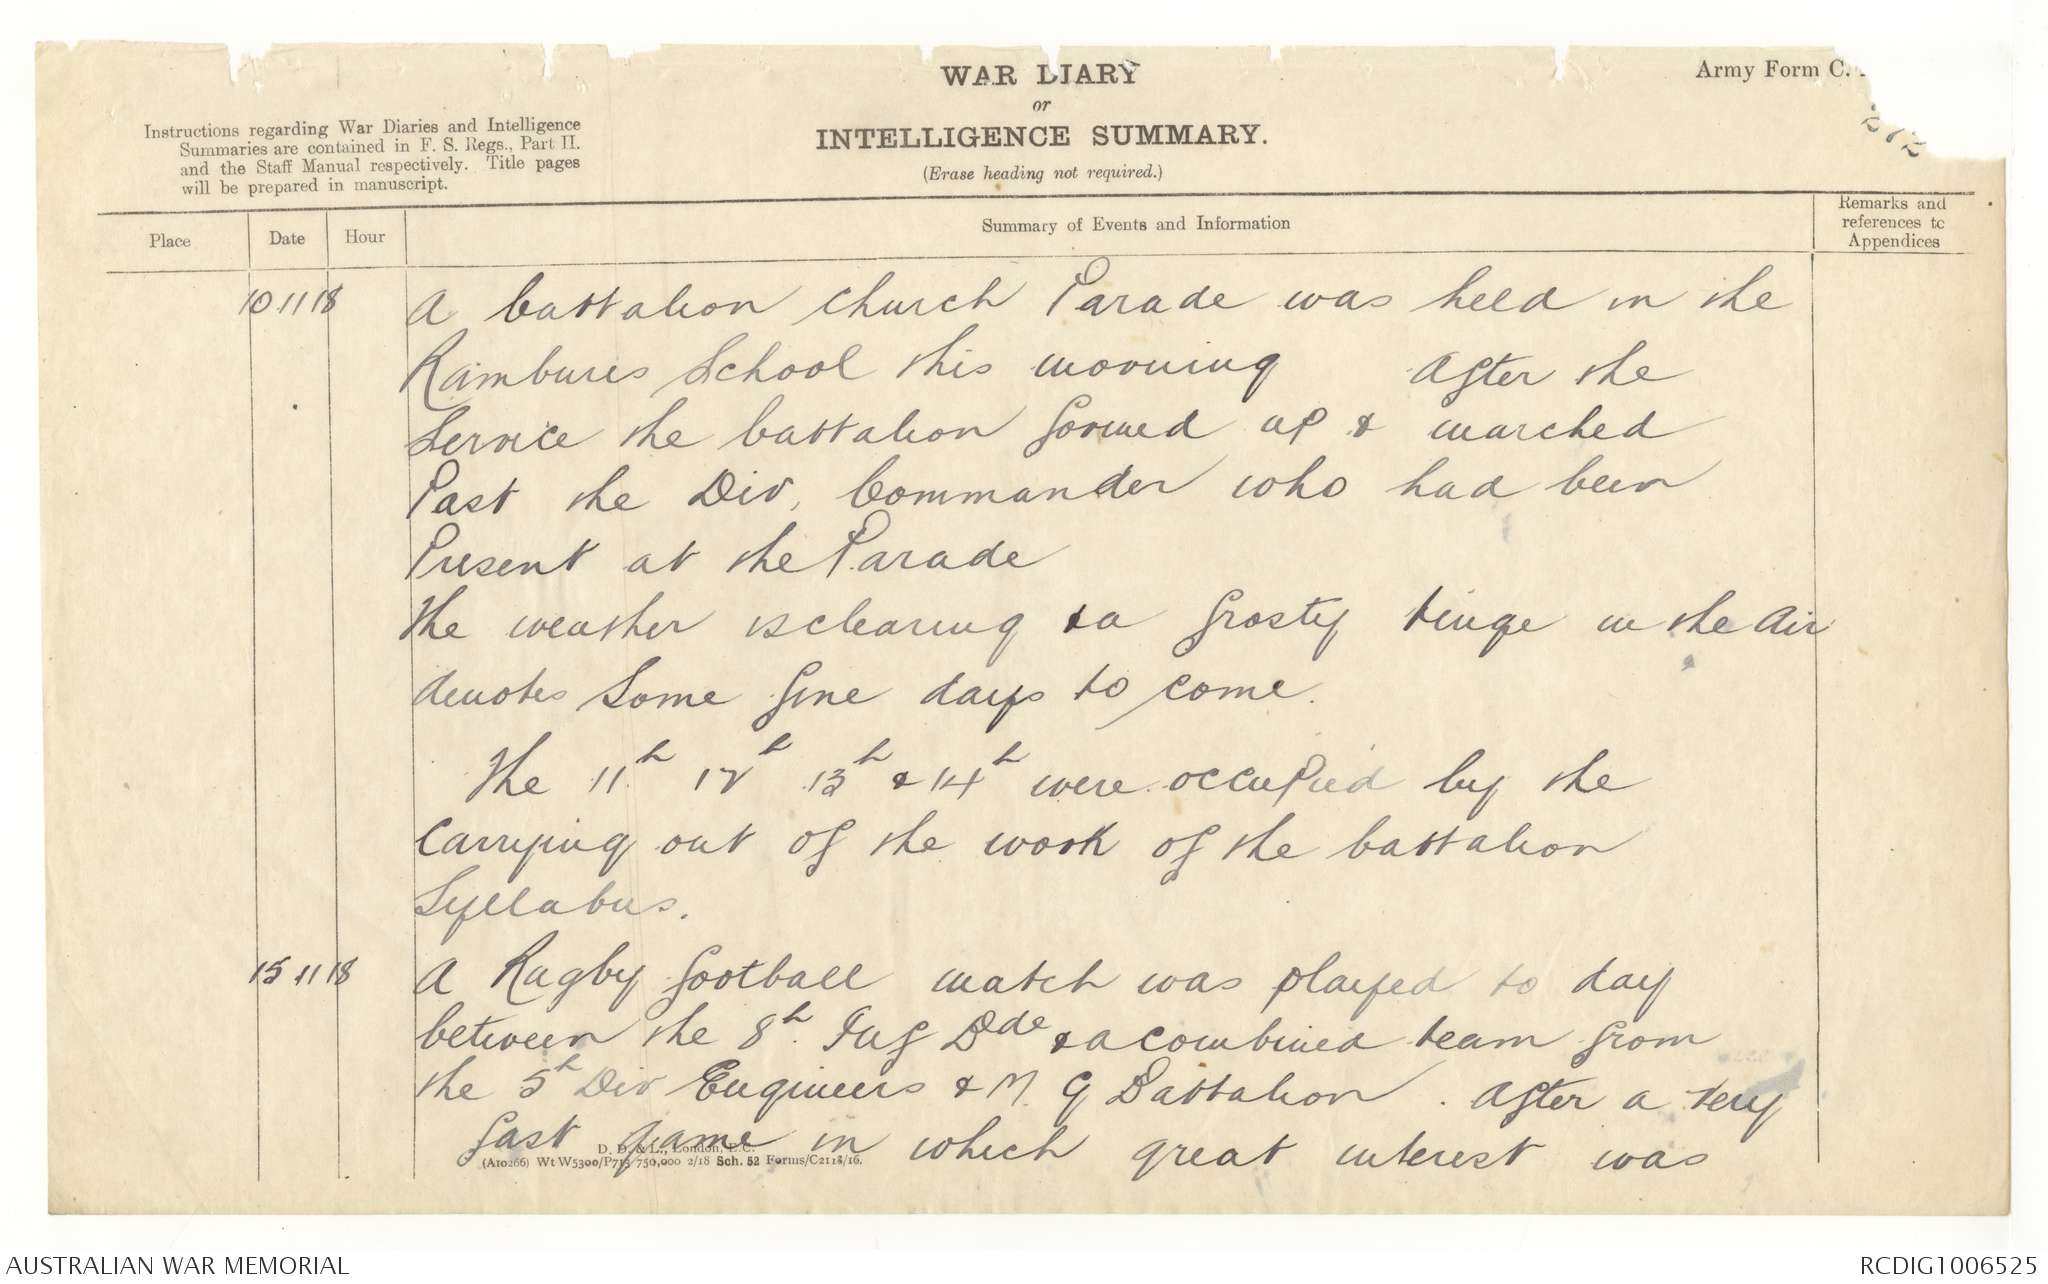 WAR DIARY
or
INTELLIGENCE SUMMARY.
(Erase heading not required.)
Army Form C.
Instructions regarding War Diaries and Intelligence
Summaries are contained in F. S. Regs., Part II.
and the Staff Manual respectively. Title pages
will be prepared in manuscript.
Place
Date
Hour
Summary of Events and Information
Remarks and
references to
Appendices
10 11 18 A battalion church Parade was held in the
Rambures School this morning After the
Service the battalion formed up & marched
Past the Div. Commander who had been
Present at the Parade
The weather is clearing & a frosty tinge in the Air
denotes Some fine days to come.
The 11th 12th 13th & 14th were occupied by the
Carrying out of the work of the battalion
Syllabus.
15 11 18 A Rugby football match was played to day
between the 8th Inf Bde & a combined team from
the 5th Div Engineers & M G Battalion. After a very
fast game in which great interest was
D. D. & L., London, E.C.
(A10266) Wt W5300/P713 750,000 2/18 Sch. 52 Forms/C2118/16.
AUSTRALIAN WAR MEMORIAL
RCDIG1006525